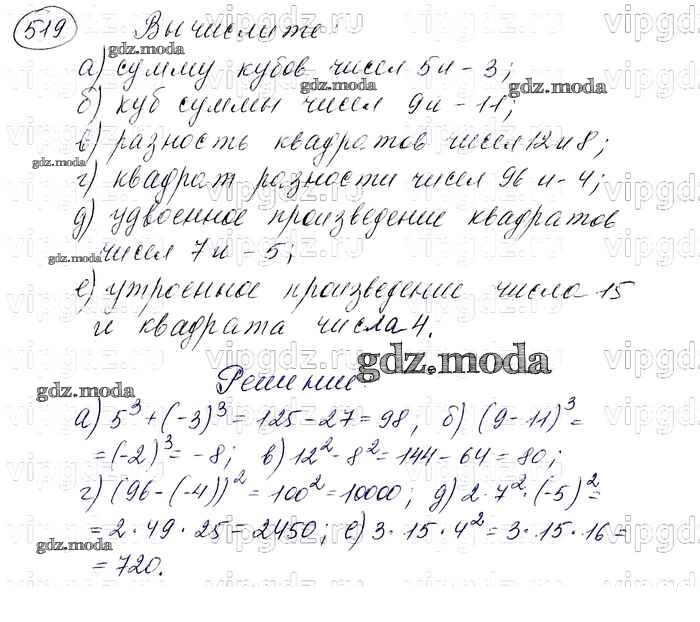 519 Вычислите
а) сумму кубов чисел 5 и -3;
б) куб суммы чисел 9 и -11;
в) разность квадратов чисел 12 и 8;
г) квадрат разности чисел 96 и -4;
д) удвоенное произведение квадратов
чисел 7 и -5;
е) утроенное произведение числа 15
и квадрата числа 4.
gdz.moda
Решение:
а) 5³+(-3)³=125-27=98; б) (9-11)³=
=(-2)³=-8; в) 12²-8²=144-64=80;
г) (96-(-4))²=100²=10000; д) 2·7²·(-5)²=
=2·49·25=2450; е) 3·15·4²=3·15·16=
=720.